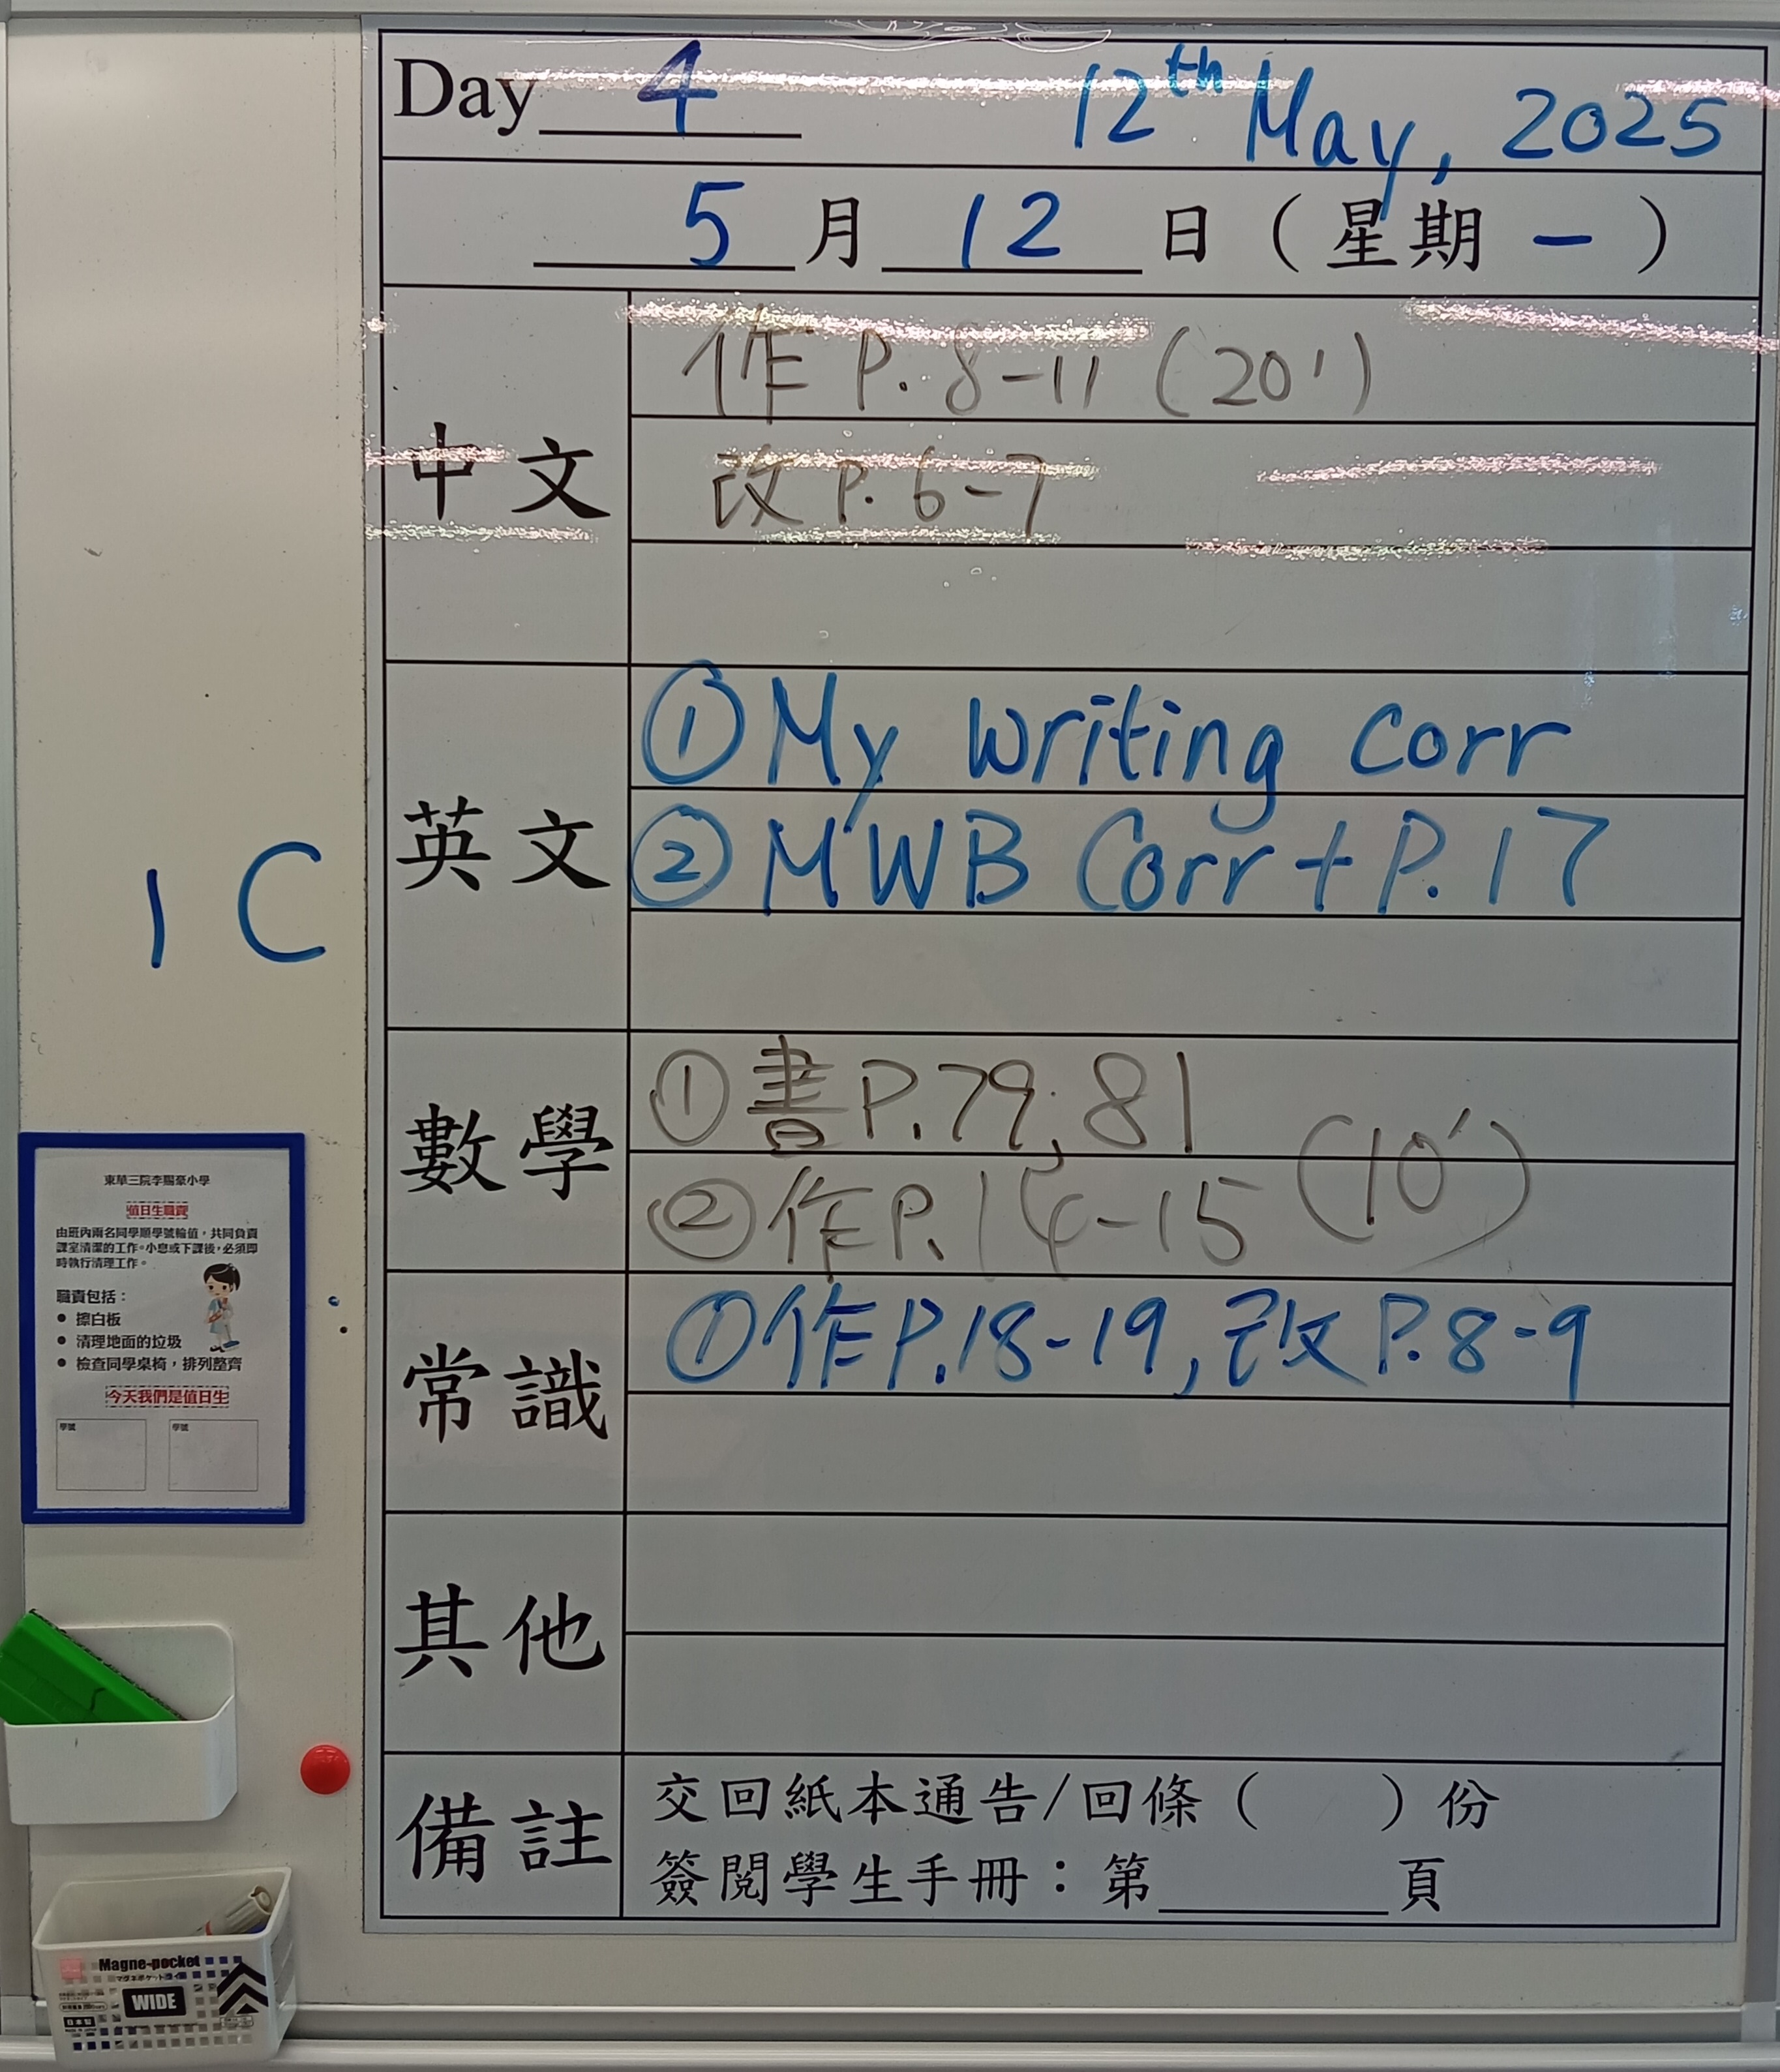 Day 4 12th May, 2025
5 月 12 日 ( 星期 一 )
中文
作 P. 8-11 (20')
改 P. 6-7
英文
① My writing corr
② MWB Corr + P. 17
數學
① 書 P. 79, 81
② 作 P. 14-15
(10')
常識
① 作 P. 18-19, 改 P. 8-9
其他
備註
交回紙本通告/回條 ( ) 份
簽閱學生手冊：第 頁
1 C
東華三院李賜豪小學
值日生職責
由班內兩名同學順學號輪值，共同負責
課室清潔的工作。小息或下課後，必須即
時執行清理工作。
職責包括：
• 擦白板
• 清理地面的垃圾
• 檢查同學桌椅，排列整齊
今天我們是值日生
學號 學號
Magne-pocket
マグネポケット
WIDE
日本製